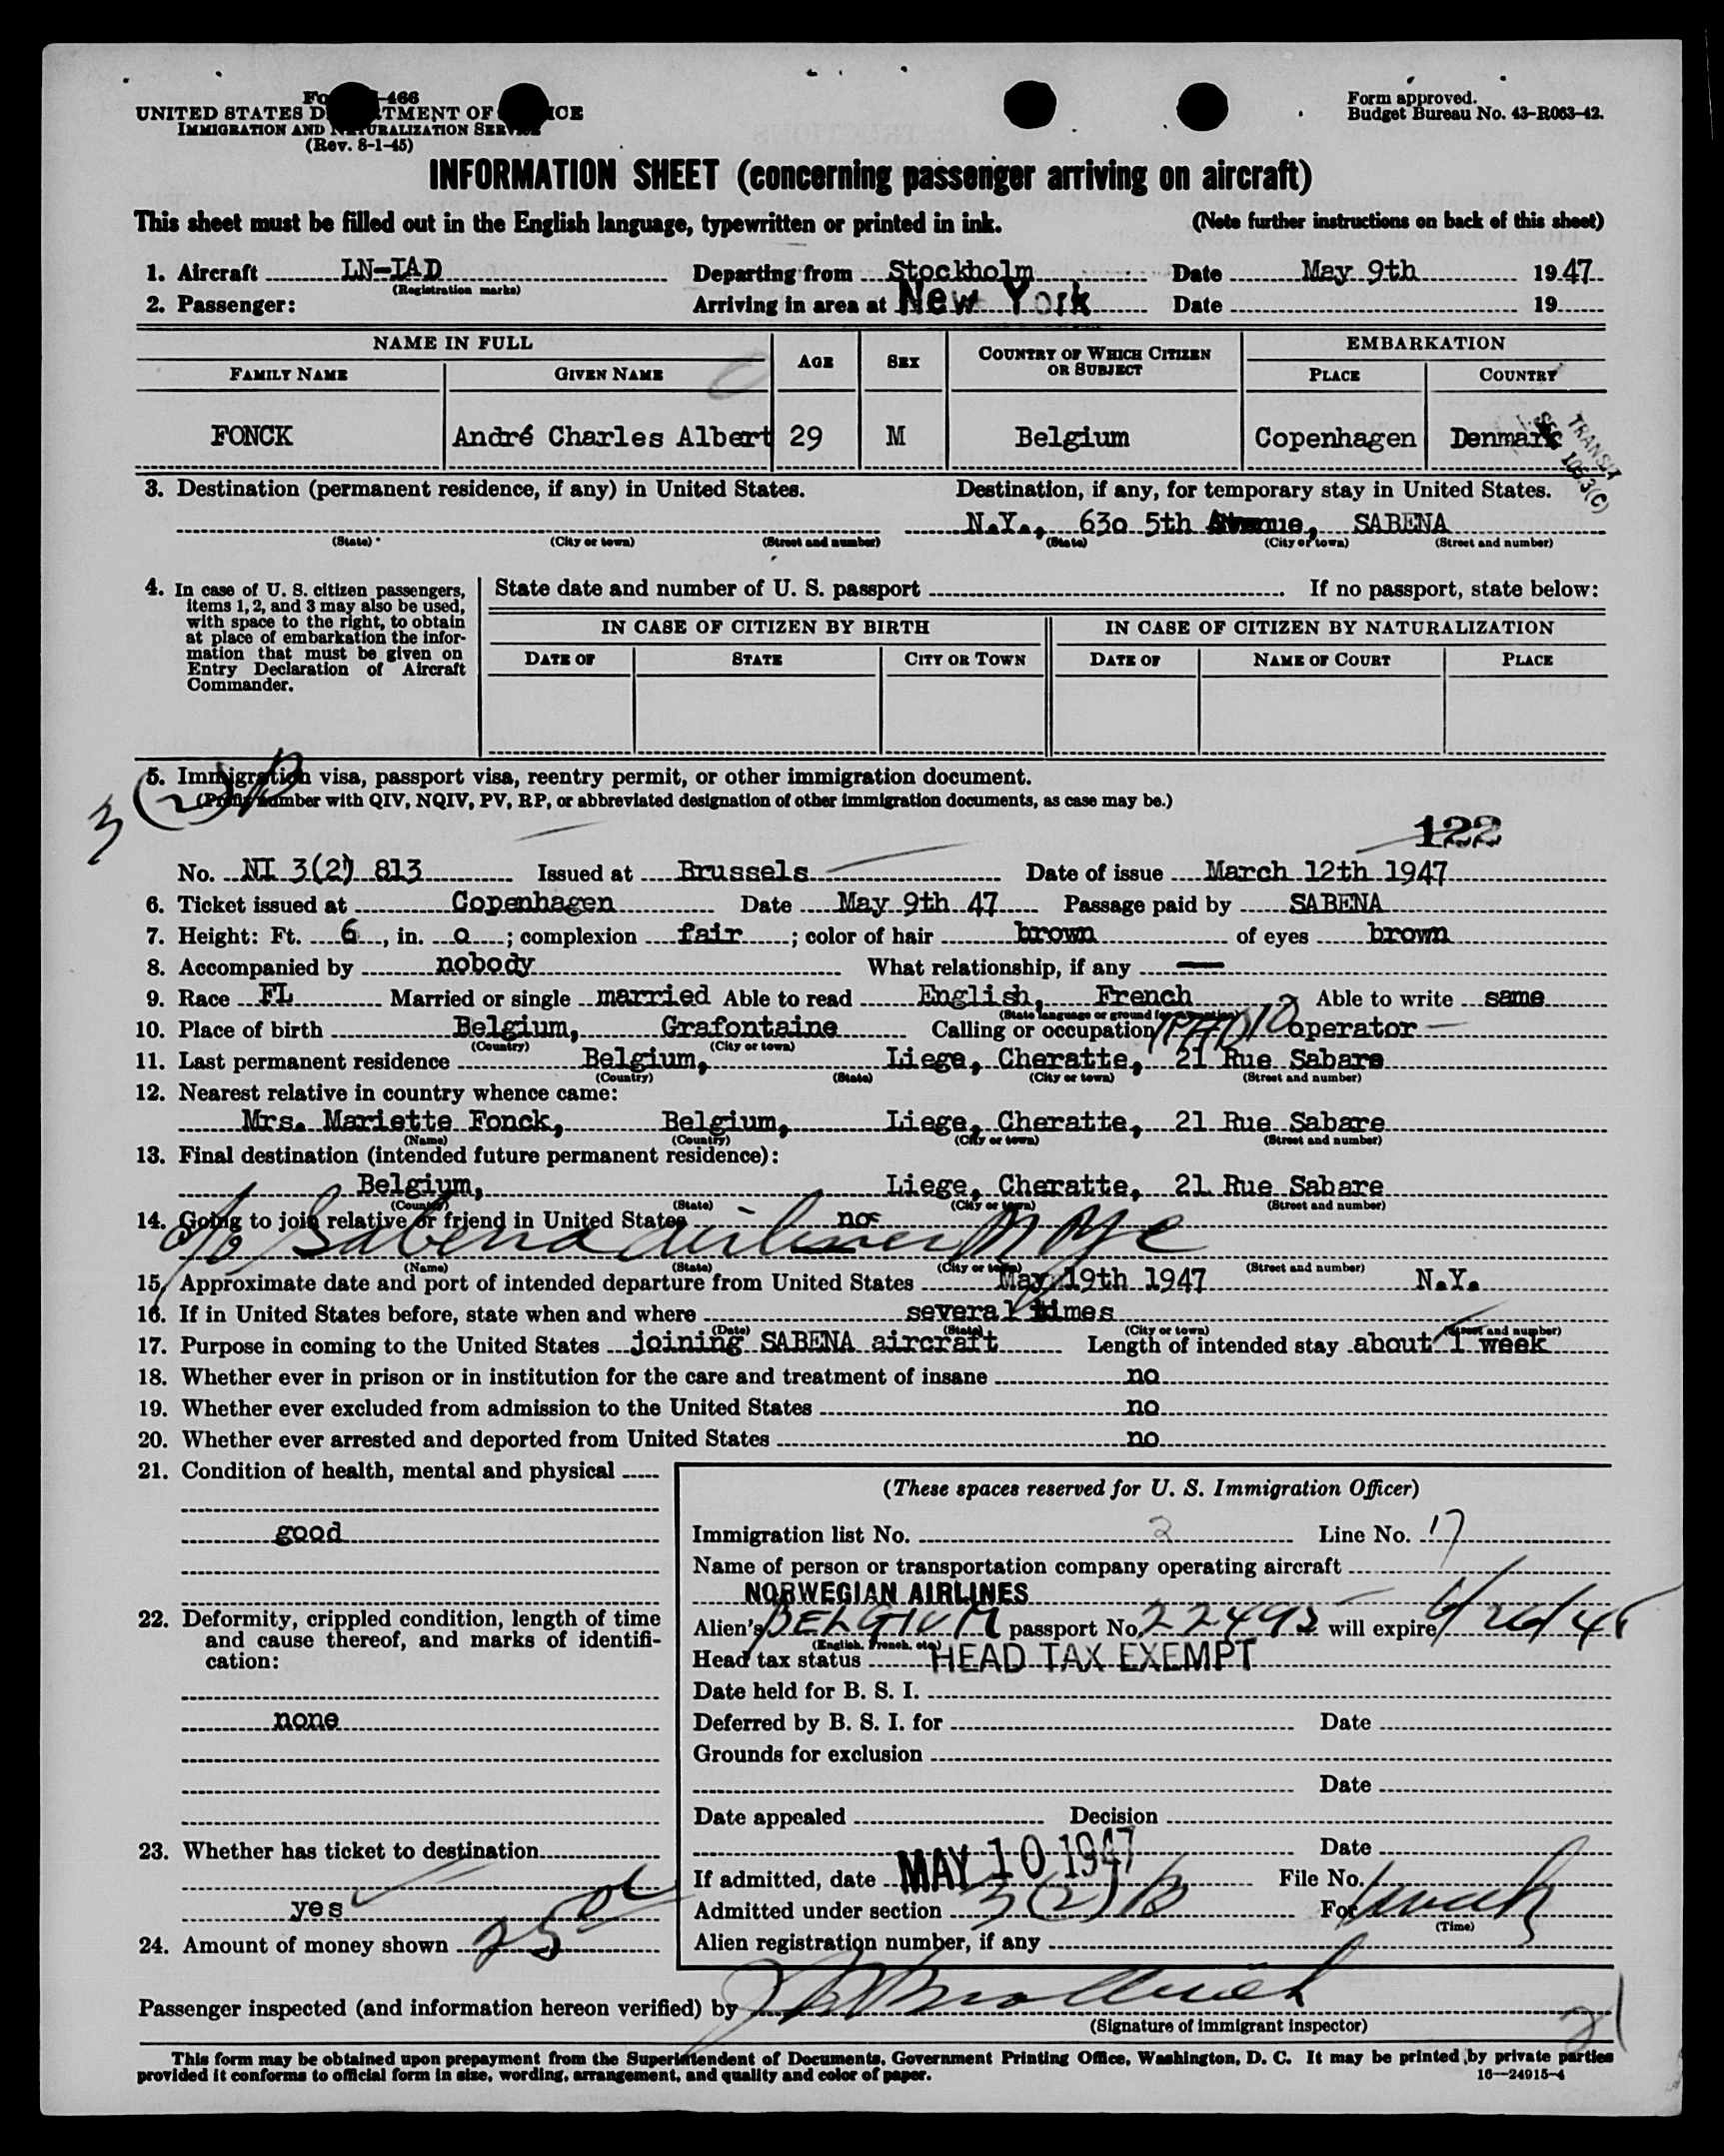 -466
UNITED STATES TMENT OF ICE
IMMIGRATION AND NATURALIZATION SERVICE
(Rev. 8-1-45)
Form approved.
Budget Bureau No. 43-R063-42.
INFORMATION SHEET (concerning passenger arriving on aircraft)
This sheet must be filled out in the English language, typewritten or printed in ink. (Note further instructions on back of this sheet)
1. Aircraft LN-IAD Departing from Stockholm Date May 9th 1947
(Registration marks)
2. Passenger: Arriving in area at New York Date 19
NAME IN FULL AGE SEX COUNTRY OF WHICH CITIZEN OR SUBJECT EMBARKATION
FAMILY NAME GIVEN NAME PLACE COUNTRY
FONCK André Charles Albert 29 M Belgium Copenhagen Denmark
TRANSIT
SEC 1053(C)
3. Destination (permanent residence, if any) in United States. Destination, if any, for temporary stay in United States.
N.Y., 630 5th Avenue, SABENA
(State) (City or town) (Street and number) (State) (City or town) (Street and number)
4. In case of U. S. citizen passengers, items 1, 2, and 3 may also be used, with space to the right, to obtain at place of embarkation the information that must be given on Entry Declaration of Aircraft Commander.
State date and number of U. S. passport If no passport, state below:
IN CASE OF CITIZEN BY BIRTH IN CASE OF CITIZEN BY NATURALIZATION
DATE OF STATE CITY OR TOWN DATE OF NAME OF COURT PLACE
5. Immigration visa, passport visa, reentry permit, or other immigration document.
(Prefix number with QIV, NQIV, PV, RP, or abbreviated designation of other immigration documents, as case may be.)
3(2)B
122
No. NI 3(2) 813 Issued at Brussels Date of issue March 12th 1947
6. Ticket issued at Copenhagen Date May 9th 47 Passage paid by SABENA
7. Height: Ft. 6, in. 0; complexion fair; color of hair brown of eyes brown
8. Accompanied by nobody What relationship, if any —
9. Race FL Married or single married Able to read English, French Able to write same
(State language or ground for exemption)
10. Place of birth Belgium, Grafontaine Calling or occupation RADIO operator
(Country) (City or town)
11. Last permanent residence Belgium, Liege, Cheratte, 21 Rue Sabare
(Country) (State) (City or town) (Street and number)
12. Nearest relative in country whence came:
Mrs. Mariette Fonck, Belgium, Liege, Cheratte, 21 Rue Sabare
(Name) (Country) (City or town) (Street and number)
13. Final destination (intended future permanent residence):
Belgium, Liege, Cheratte, 21 Rue Sabare
(Country) (State) (City or town) (Street and number)
14. Going to join relative or friend in United States no
c/o Sabena Airlines NYC
(Name) (State) (City or town) (Street and number)
15. Approximate date and port of intended departure from United States May 19th 1947 N.Y.
16. If in United States before, state when and where several times
(Date) (State) (City or town) (Street and number)
17. Purpose in coming to the United States joining SABENA aircraft Length of intended stay about 1 week
18. Whether ever in prison or in institution for the care and treatment of insane no
19. Whether ever excluded from admission to the United States no
20. Whether ever arrested and deported from United States no
21. Condition of health, mental and physical
good
22. Deformity, crippled condition, length of time and cause thereof, and marks of identification:
none
23. Whether has ticket to destination
yes
24. Amount of money shown 25
(These spaces reserved for U. S. Immigration Officer)
Immigration list No. 2 Line No. 17
Name of person or transportation company operating aircraft
NORWEGIAN AIRLINES
Alien's BELGIUM passport No. 22495 will expire 6/26/48
(English, French, etc.)
Head tax status HEAD TAX EXEMPT
Date held for B. S. I.
Deferred by B. S. I. for Date
Grounds for exclusion
Date
Date appealed Decision
Date
If admitted, date MAY 10 1947 File No.
Admitted under section 3(2)B For 1 week
(Time)
Alien registration number, if any
Passenger inspected (and information hereon verified) by
(Signature of immigrant inspector)
21
This form may be obtained upon prepayment from the Superintendent of Documents, Government Printing Office, Washington, D. C. It may be printed by private parties
provided it conforms to official form in size, wording, arrangement, and quality and color of paper. 16—24915-4